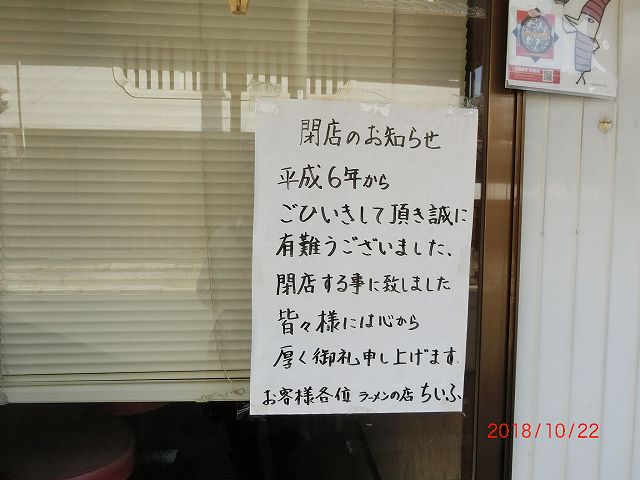 閉店のお知らせ
平成6年から
ごひいきして頂き誠に
有難うございました、
閉店する事に致しました
皆々様には心から
厚く御礼申し上げます.
お客様各位 ラーメンの店 ちいふ
2018/10/22